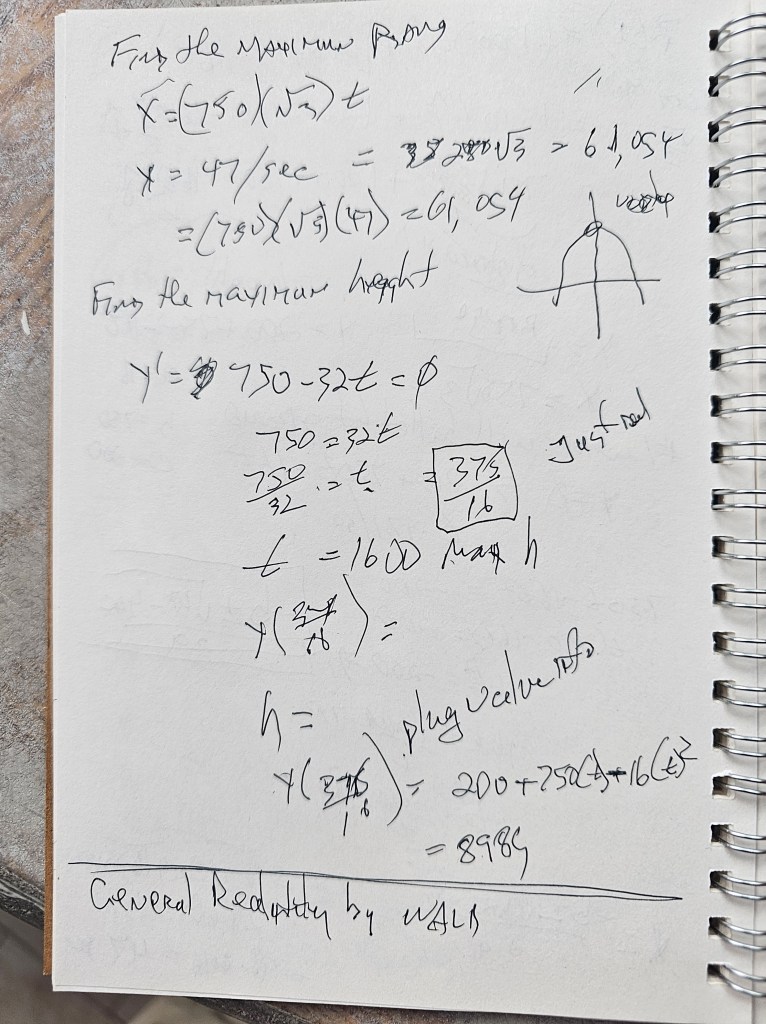 Find the Maximum Rang
X = (750)(√3) t
X = 47/sec = 35250√3 = 61,054
= (750)(√3)(47) = 61,054
Find the maximum height
y' = 750 - 32t = ∅
750 = 32t
750/32 = t = 375/16
t = 1600 Max h
y(375/16) =
h =
plug value into
y(375/16) = 200 + 750(t) - 16(t)²
= 8989
General Reality by WALD